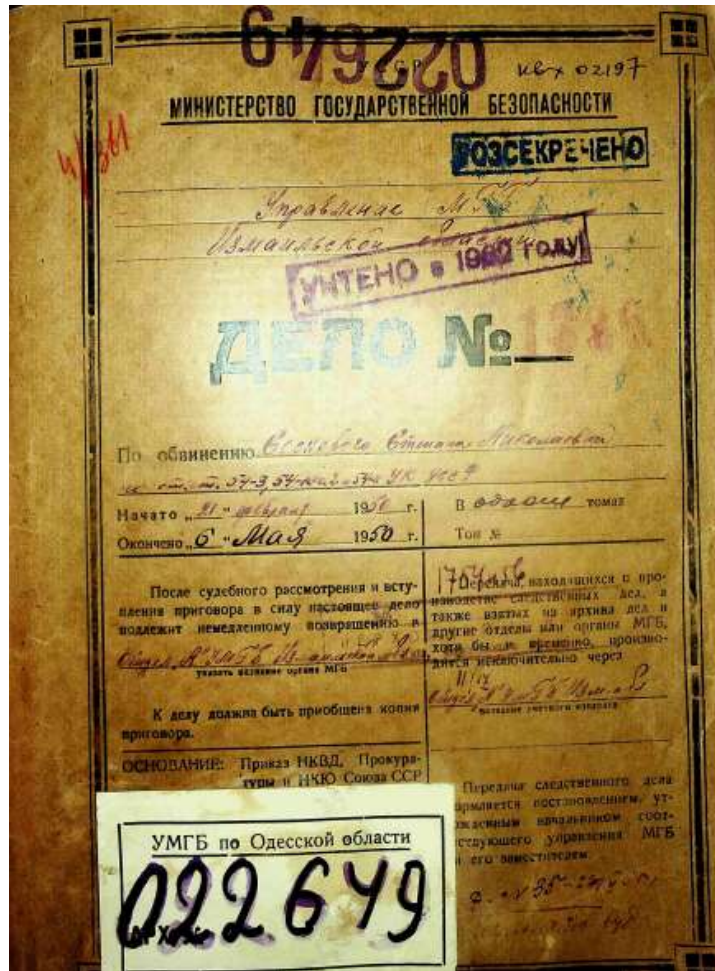 022649
СССР
квх 02197
МИНИСТЕРСТВО ГОСУДАРСТВЕННОЙ БЕЗОПАСНОСТИ
4/361
РОЗСЕКРЕЧЕНО
Управление МГБ
Измаильской области
УЧТЕНО в 1962 ГОДУ
ДЕЛО №
По обвинению Степана Николаевича
по ст.ст. 54-3, УК УССР
Начато „21" февраля 1950 г.
Окончено „6" Мая 1950 г.
В одном томах
Том №
После судебного рассмотрения и вступ-
ления приговора в силу настоящее дело
подлежит немедленному возвращению в
Отдел "А" УМГБ
указать название органа МГБ
К делу должна быть приобщена копия
приговора.
ОСНОВАНИЕ: Приказ НКВД, Прокура-
туры и НКЮ Союза ССР
Передача, находящихся в про-
изводстве следственных дел, а
также взятых из архива дел в
другие отделы или органы МГБ,
хотя бы и временно, произво-
дится исключительно через
Отдел "А" УМГБ
название учетного аппарата
Передача следственного дела
оформляется постановлением, ут-
вержденным начальником соот-
ветствующего управления МГБ
или его заместителем
УМГБ по Одесской области
022649
АРХ. №